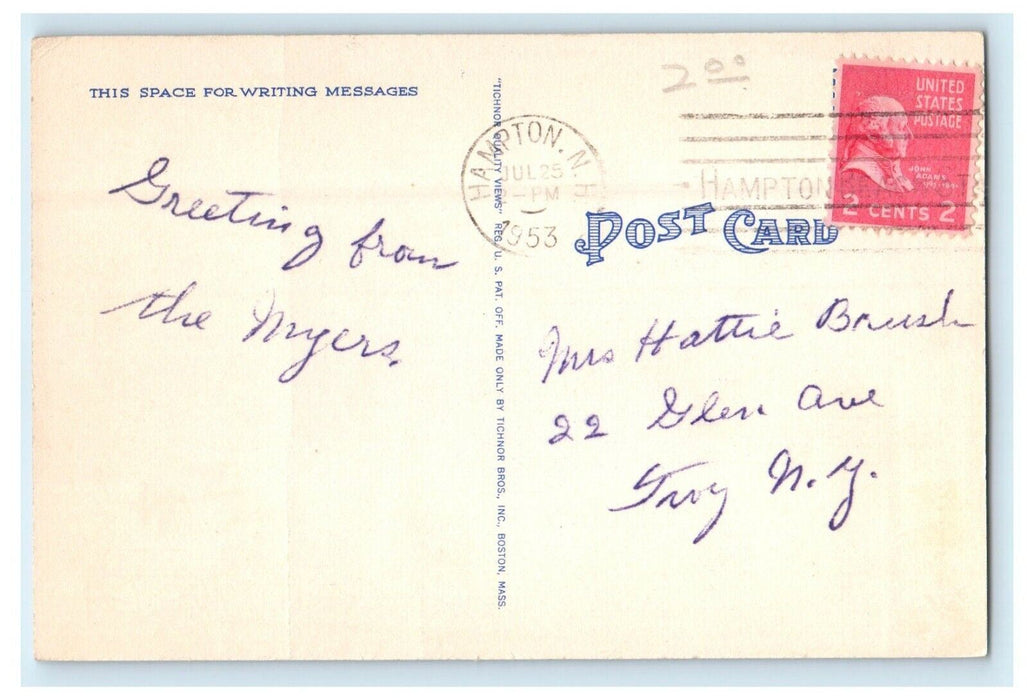 THIS SPACE FOR WRITING MESSAGES
Greeting from
the Myers,
"TICHNOR QUALITY VIEWS" REG. U. S. PAT. OFF. MADE ONLY BY TICHNOR BROS., INC., BOSTON, MASS.
2 00
HAMPTON. N. H.
JUL 25
2-PM
1953
HAMPTON
UNITED
STATES
POSTAGE
JOHN
ADAMS
2 CENTS 2
POST CARD
Mrs Hattie Brush
22 Glen Ave
Troy N.Y.